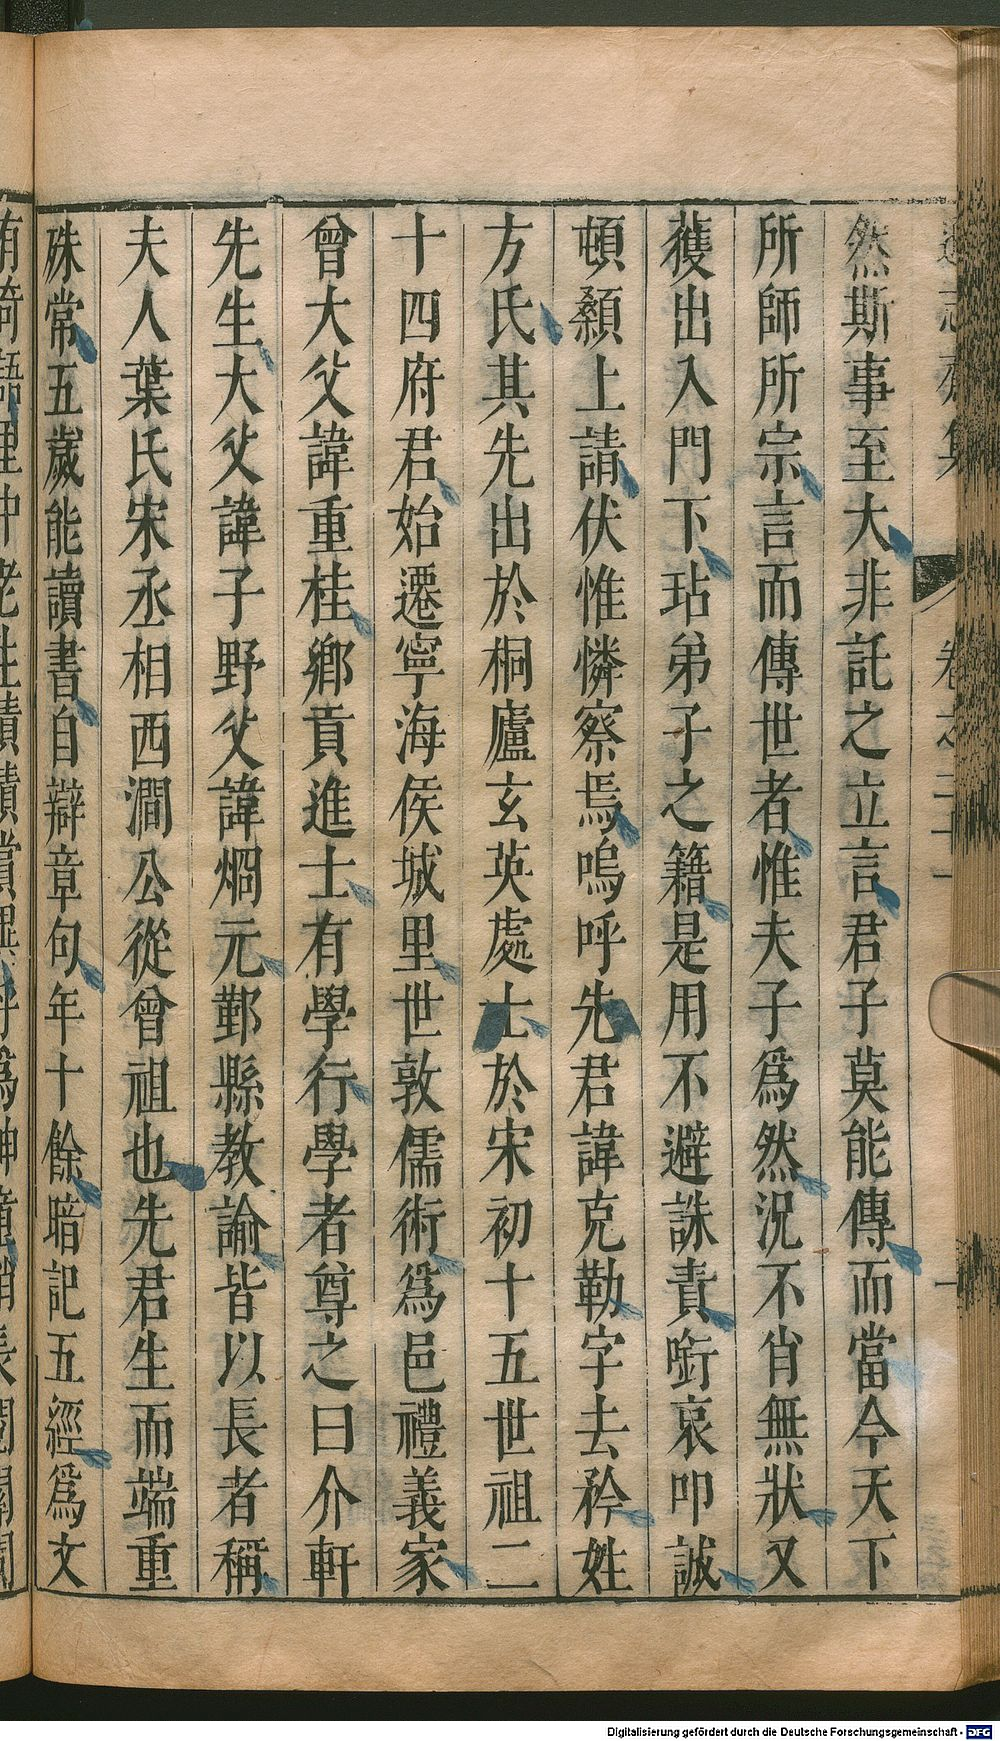 然斯事至大非託之立言君子莫能傳而當今天下
所師所宗言而傳世者惟夫子爲然況不肖無狀又
獲出入門下玷弟子之籍是用不避誅責銜哀叩誠
頓顙上請伏惟憐察焉嗚呼先君諱克勤字去矜姓
方氏其先出於桐廬玄英處士於宋初十五世祖二
十四府君始遷寧海侯城里世敦儒術爲邑禮義家
曾大父諱重桂鄉貢進士有學行學者尊之曰介軒
先生大父諱子野父諱烱元鄞縣教諭皆以長者稱
夫人葉氏宋丞相西澗公從曾祖也先君生而端重
殊常五歲能讀書自辯章句年十餘暗記五經爲文
Digitalisierung gefördert durch die Deutsche Forschungsgemeinschaft - DFG